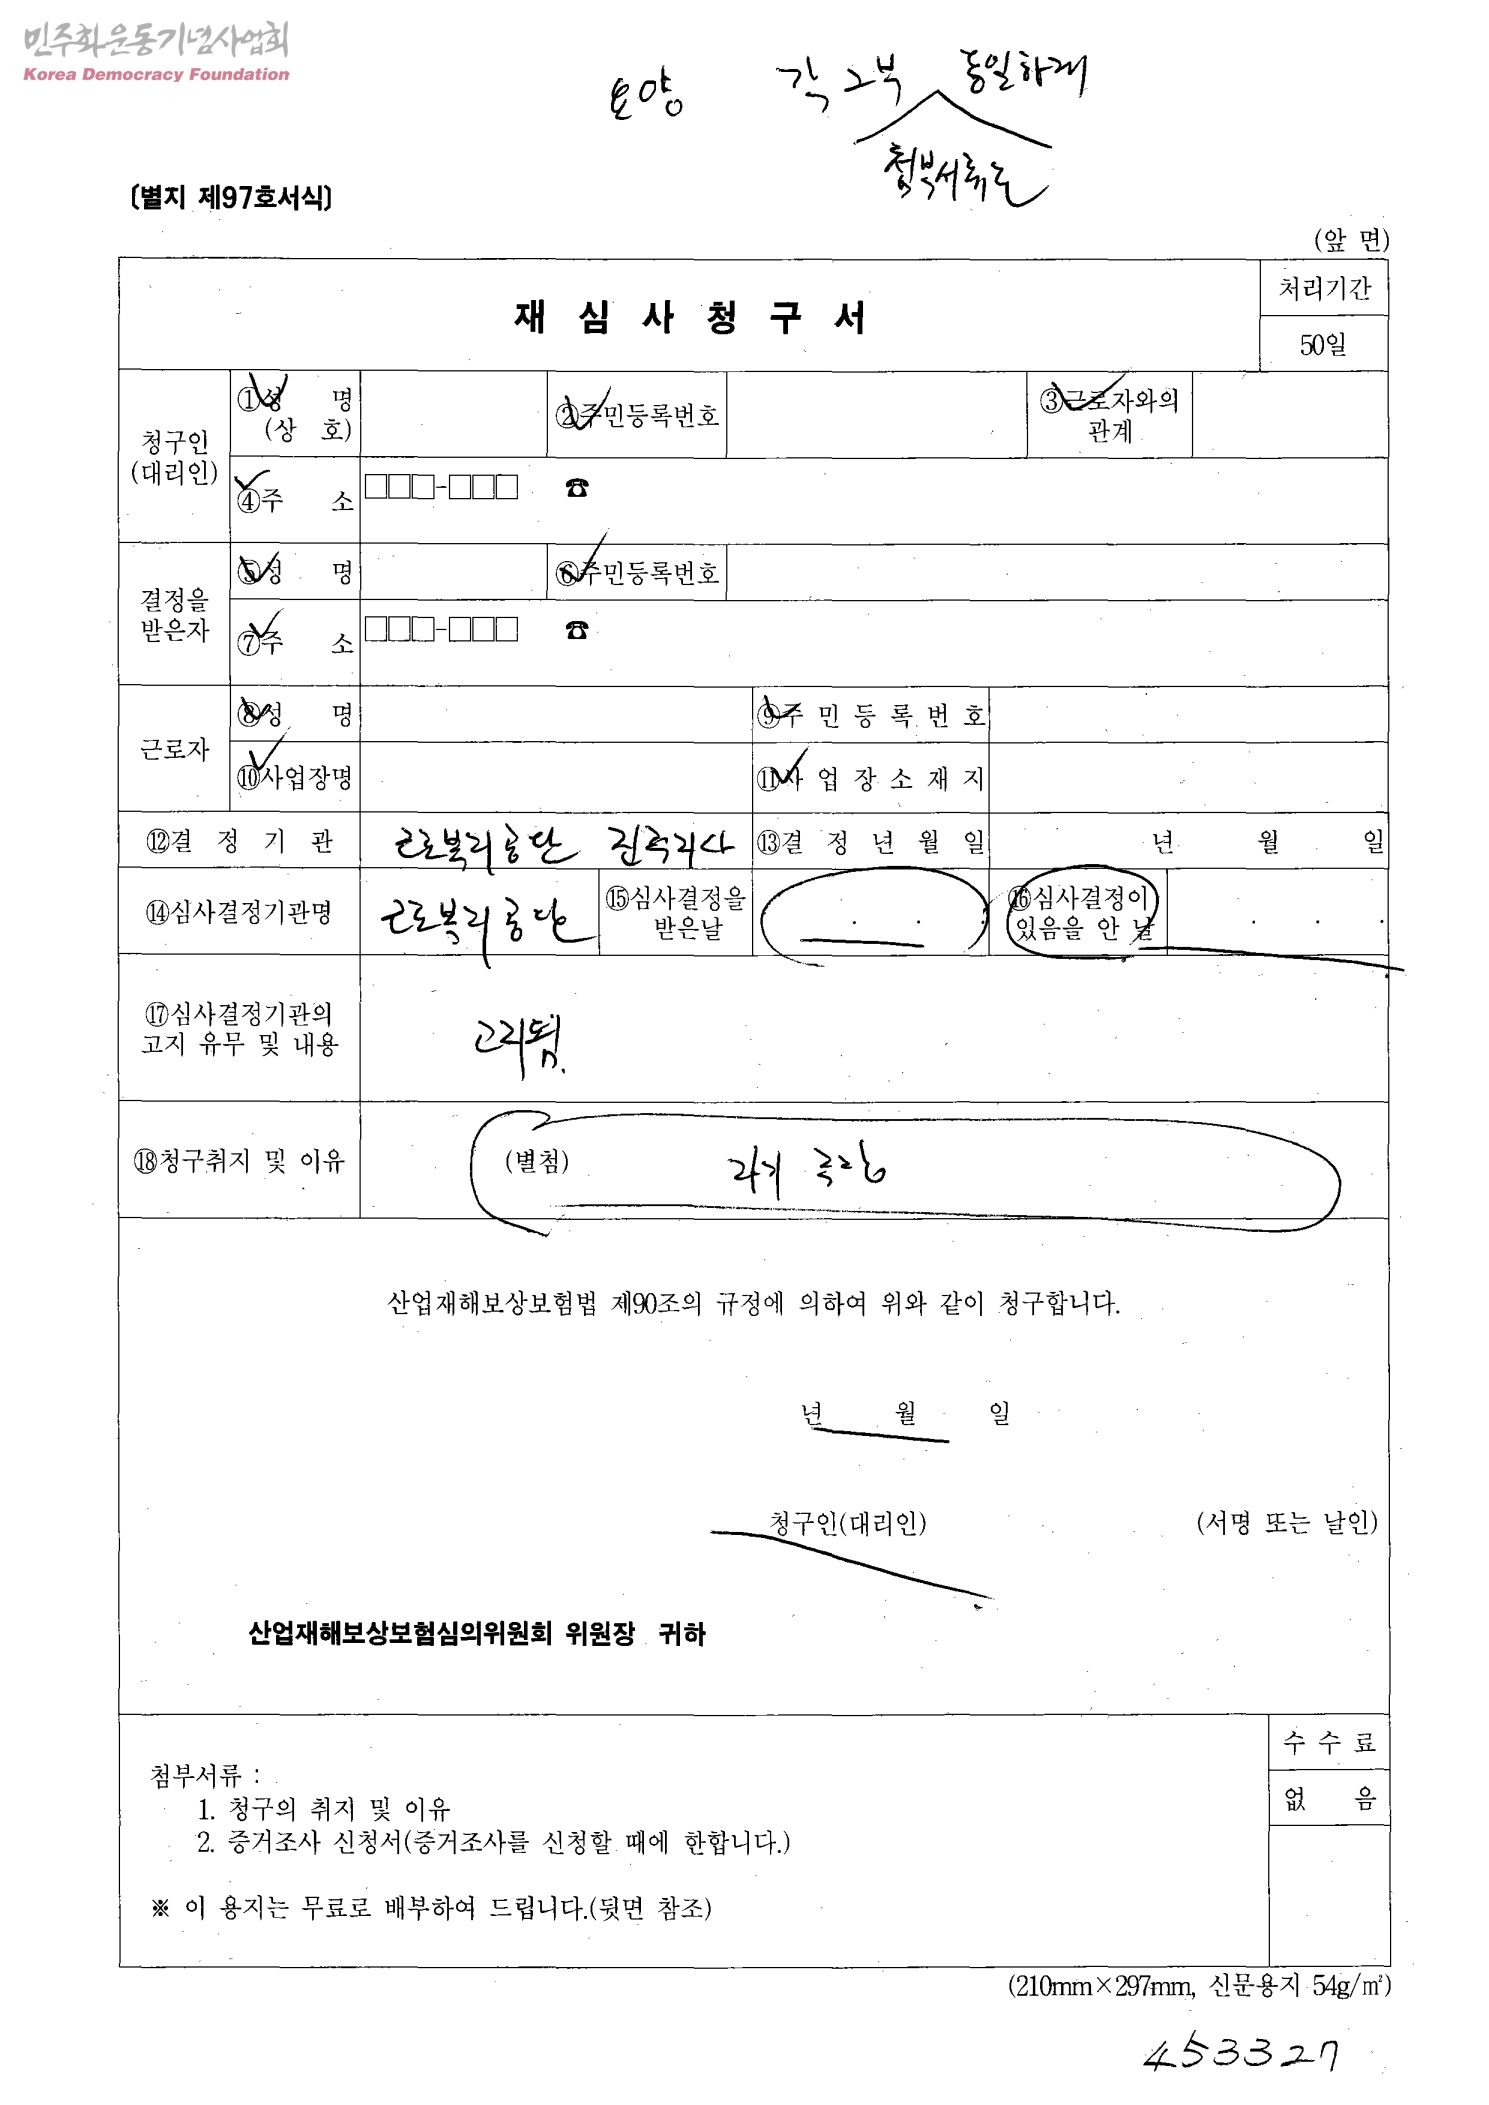 민주화운동기념사업회
Korea Democracy Foundation
요양 각 2부 동일하게
첨부서류는
[별지 제97호서식]
(앞 면)
재 심 사 청 구 서
처리기간
50일
청구인
(대리인)
①성 명
(상 호)
②주민등록번호
③근로자와의
관계
④주 소 □□□-□□□ ☎
결정을
받은자
⑤성 명
⑥주민등록번호
⑦주 소 □□□-□□□ ☎
근로자
⑧성 명
⑨주 민 등 록 번 호
⑩사업장명
⑪사 업 장 소 재 지
⑫결 정 기 관 근로복리공단
⑬결 정 년 월 일 년 월 일
⑭심사결정기관명 근로복리공단
⑮심사결정을
받은날 . . .
⑯심사결정이
있음을 안 날 . . .
⑰심사결정기관의
고지 유무 및 내용
고지됨.
⑱청구취지 및 이유 (별첨)
산업재해보상보험법 제90조의 규정에 의하여 위와 같이 청구합니다.
년 월 일
청구인(대리인) (서명 또는 날인)
산업재해보상보험심의위원회 위원장 귀하
수 수 료
없 음
첨부서류 :
1. 청구의 취지 및 이유
2. 증거조사 신청서(증거조사를 신청할 때에 한합니다.)
※ 이 용지는 무료로 배부하여 드립니다.(뒷면 참조)
(210mm×297mm, 신문용지 54g/㎡)
453327